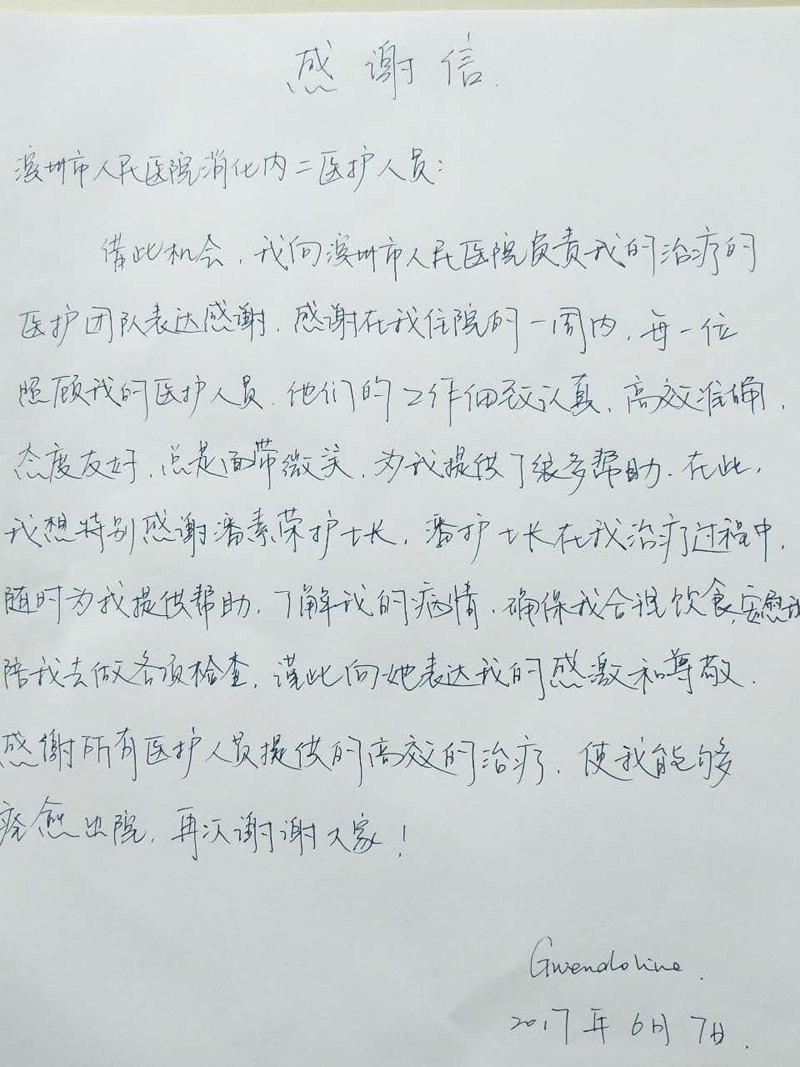 感谢信.
深圳市人民医院消化内二医护人员:
借此机会,我向深圳市人民医院负责我的治疗的
医护团队表达感谢.感谢在我住院的一周内,每一位
照顾我的医护人员.他们的工作细致认真,高效准确,
态度友好,总是面带微笑,为我提供了很多帮助.在此,
我想特别感谢潘素荣护士长,潘护士长在我治疗过程中,
随时为我提供帮助,了解我的病情,确保我合理饮食,安慰我
陪我去做各项检查,谨此向她表达我的感激和尊敬.
感谢所有医护人员提供的高效的治疗,使我能够
痊愈出院,再次谢谢大家!
Gwendoline.
2017年6月7日.